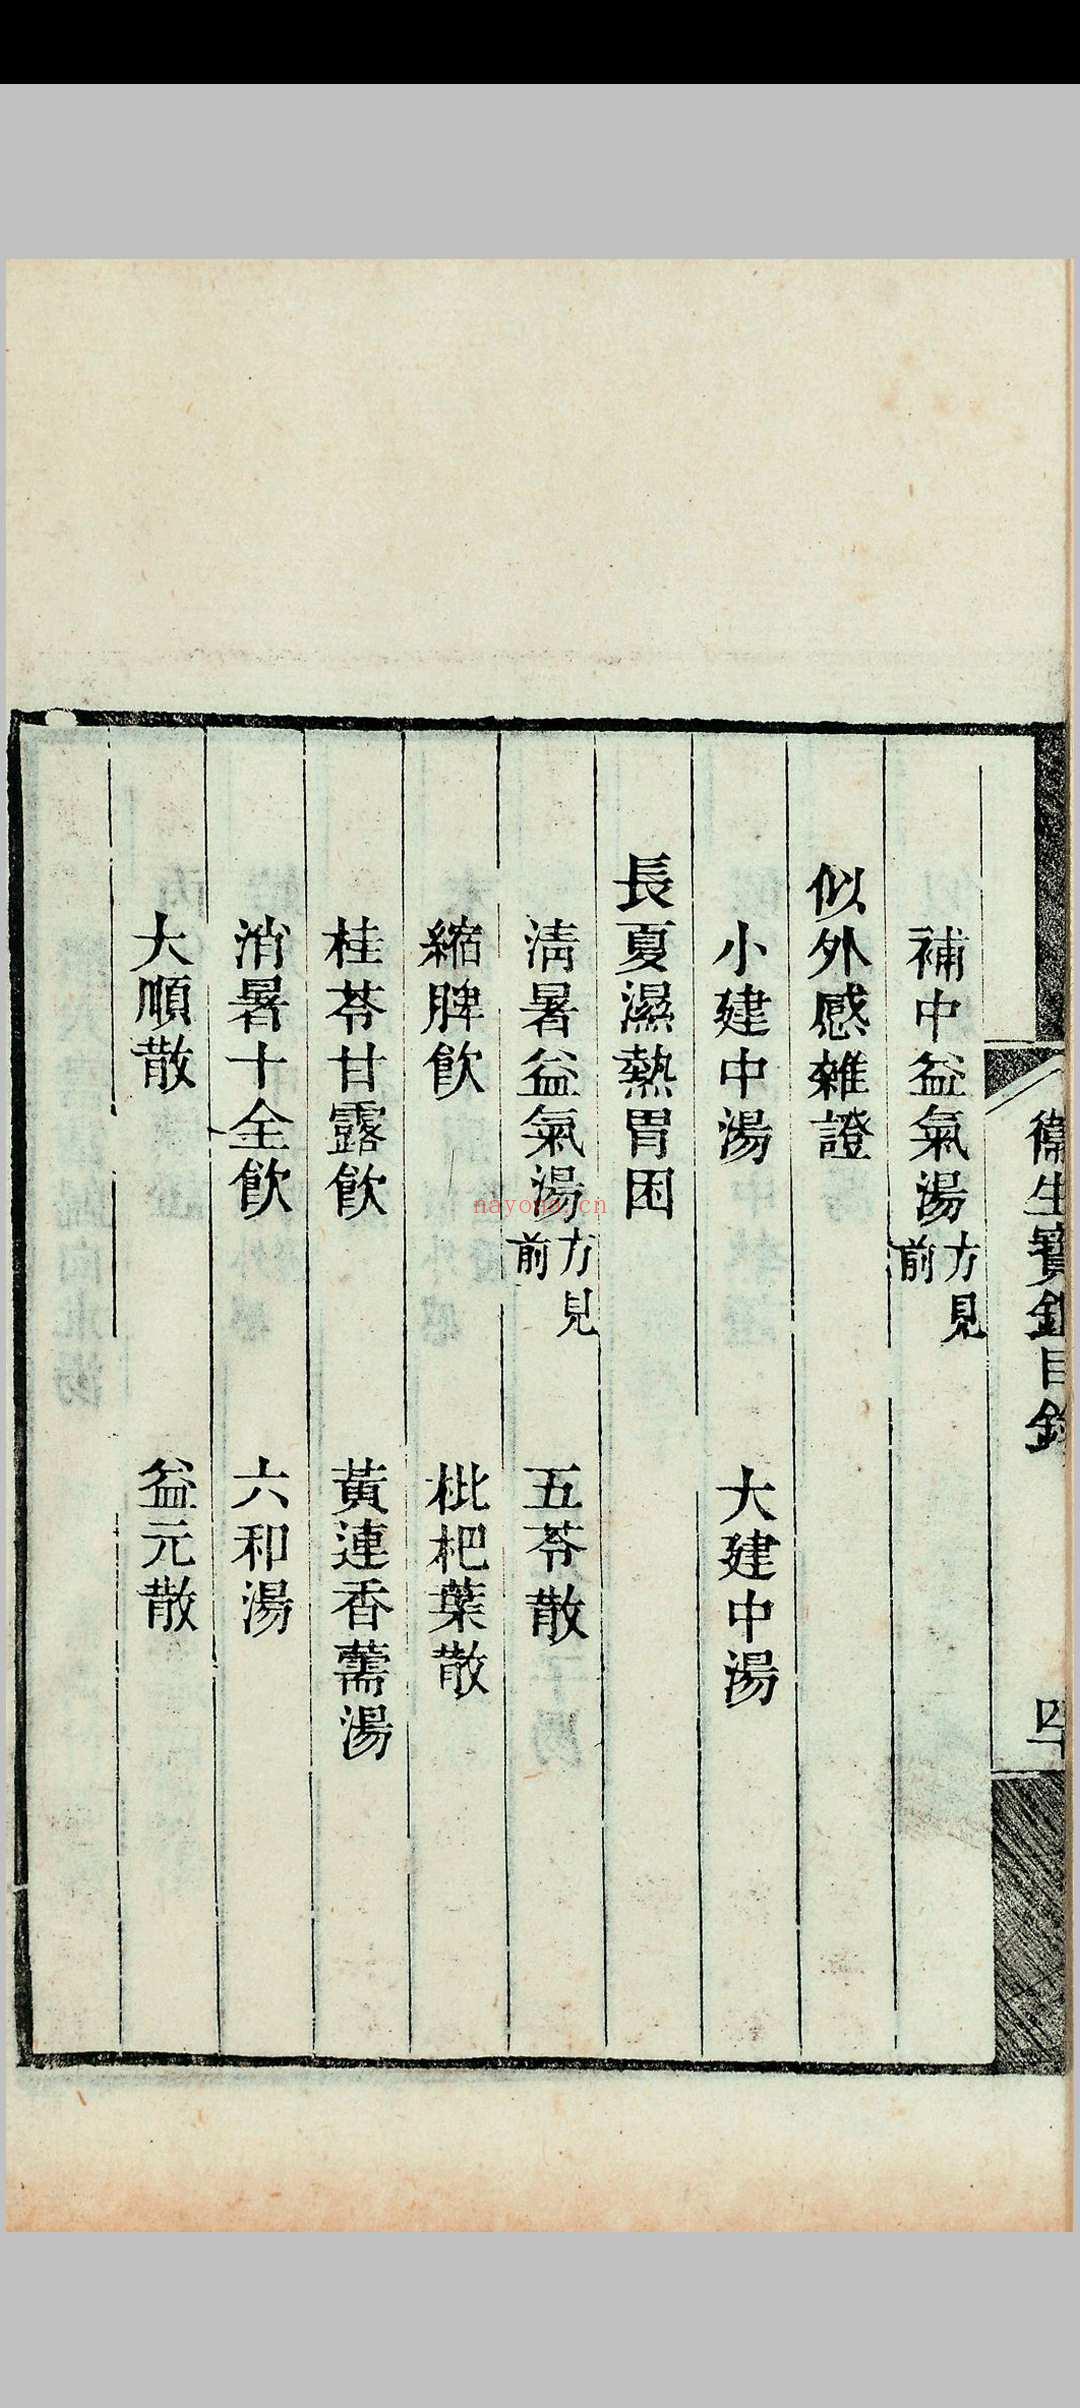 衞生寶鑑目錄
四
補中益氣湯方見前
似外感雜證
小建中湯
大建中湯
長夏濕熱胃困
淸暑益氣湯方見前
五苓散
縮脾飮
枇杷葉散
桂苓甘露飮
黃連香薷湯
消暑十全飮
六和湯
大順散
益元散
nayona.cn